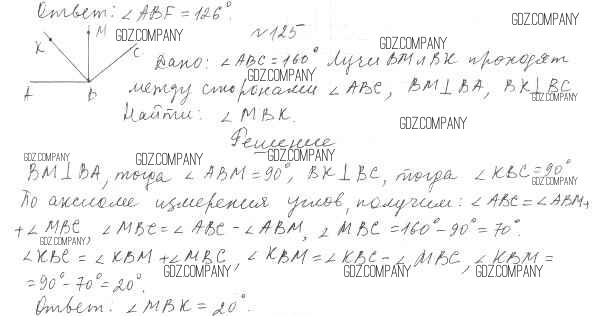 Ответ: ∠ABF = 126°.
GDZ.COMPANY
N125
M
K
GDZ.COMPANY
C
GDZ.COMPANY
Дано: ∠ABC = 160° Лучи BM и BK проходят
A
B
GDZ.COMPANY
между сторонами ∠ABC, BM⊥BA, BK⊥BC
GDZ.COMPANY
Найти: ∠MBK.
GDZ.COMPANY
Решение
GDZ.COMPANY GDZ.COMPANY GDZ.COMPANY
BM⊥BA, тогда ∠ABM = 90°, BK⊥BC, тогда ∠KBC = 90°
GDZ.COMPANY
По аксиоме измерения углов, получим: ∠ABC = ∠ABM +
+ ∠MBC, ∠MBC = ∠ABC - ∠ABM, ∠MBC = 160° - 90° = 70°.
GDZ.COMPANY
∠KBC = ∠KBM + ∠MBC, ∠KBM = ∠KBC - ∠MBC, ∠KBM =
GDZ.COMPANY GDZ.COMPANY GDZ.COMPANY
= 90° - 70° = 20°.
Ответ: ∠MBK = 20°.